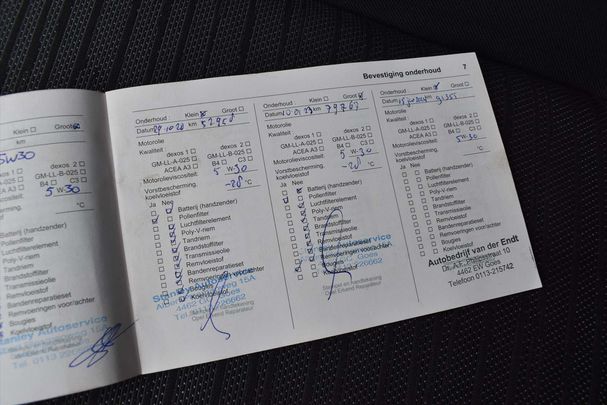 Bevestiging onderhoud 7
Klein Groot
km
5W30
B4 C3
5 W-30
°C
Batterij (handzender)
Pollenfilter
Luchtfilterelement
Poly-V-riem
Tandriem
Brandstoffilter
Transmissieolie
Remvloeistof
Bandenreparatieset
Remvoeringen voor/achter
Bougies
Koelvloeistof
Stanley Autoservice
Onderhoud Klein Groot
Datum 29-10-20 km
Motorolie
Kwaliteit dexos 1 dexos 2
GM-LL-A-025 GM-LL-B-025
ACEA A3 B4 C3
Motorolieviscositeit: 5 W-30
Vorstbescherming, koelvloeistof -28 °C
Ja Nee
Batterij (handzender)
Pollenfilter
Luchtfilterelement
Poly-V-riem
Tandriem
Brandstoffilter
Transmissieolie
Remvloeistof
Bandenreparatieset
Remvoeringen voor/achter
Bougies
Koelvloeistof
Stanley Autoservice
Stempel en handtekening
Opel Erkend Reparateur
Onderhoud Klein Groot
Datum km
Motorolie
Kwaliteit dexos 1 dexos 2
GM-LL-A-025 GM-LL-B-025
ACEA A3 B4 C3
Motorolieviscositeit: 5 W-30
Vorstbescherming, koelvloeistof -28 °C
Ja Nee
Batterij (handzender)
Pollenfilter
Luchtfilterelement
Poly-V-riem
Tandriem
Brandstoffilter
Transmissieolie
Remvloeistof
Bandenreparatieset
Remvoeringen voor/achter
Bougies
Koelvloeistof
Stempel en handtekening
Opel Erkend Reparateur
Onderhoud Klein Groot
Datum km
Motorolie
Kwaliteit dexos 1 dexos 2
GM-LL-A-025 GM-LL-B-025
ACEA A3 B4 C3
Motorolieviscositeit: 5 W-30
Vorstbescherming, koelvloeistof °C
Ja Nee
Batterij (handzender)
Pollenfilter
Luchtfilterelement
Poly-V-riem
Tandriem
Brandstoffilter
Transmissieolie
Remvloeistof
Bandenreparatieset
Remvoeringen voor/achter
Bougies
Koelvloeistof
Autobedrijf van der Endt
Dr. A.F. Philipsstraat 10
4462 EW Goes
Telefoon 0113-215742